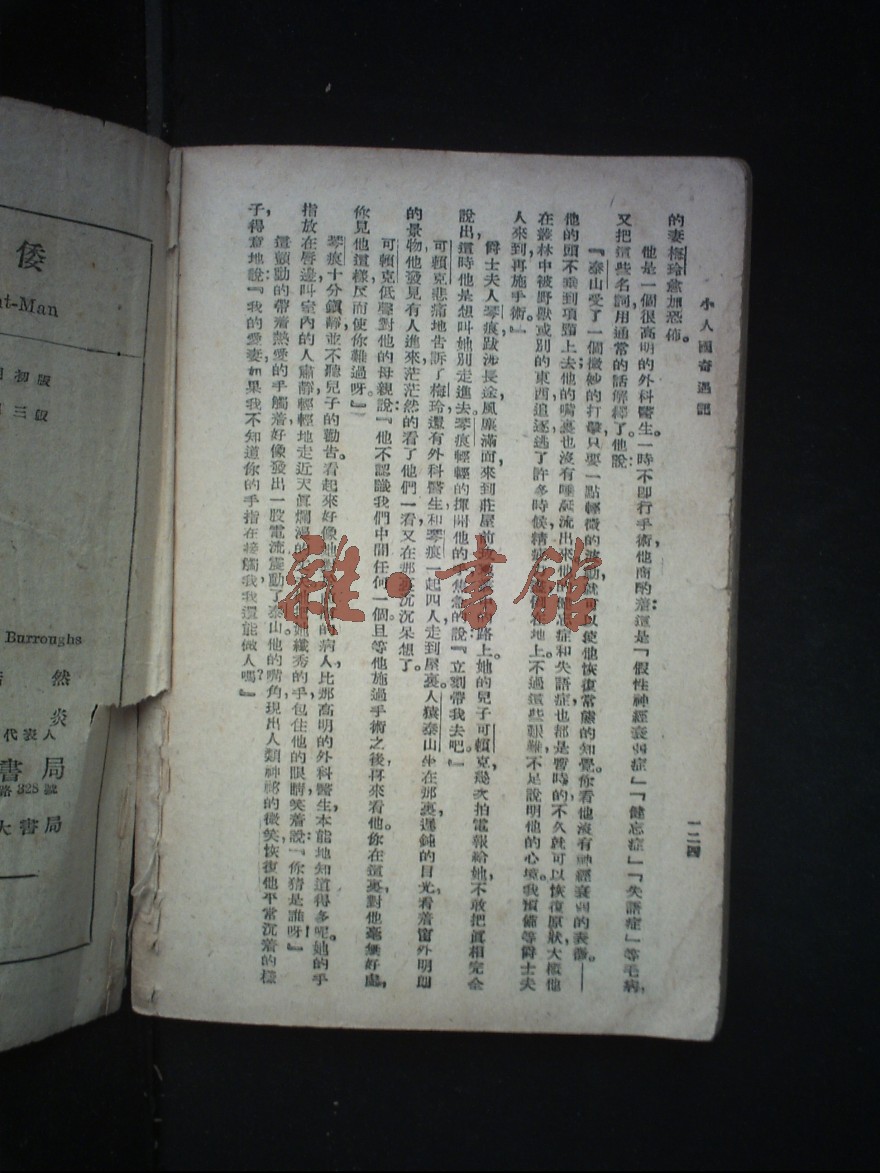 小人國奇遇記
一二四
的妻梅玲愈加恐怖。
他是一個很高明的外科醫生一時不即行手術他商酌着這是『假性神經衰弱症』『健忘症』『失語症』等毛病，
又把這些名詞用通常的話解釋了他說：
『泰山受了一個微妙的打擊只要一點輕微的波動就可以使他恢復常態的知覺。你看他沒有神經衰弱的表徵——
他的頭不垂到項頸上去他的嘴裏也沒有唾涎流出來他的健忘症和失語症也都是暫時的不久就可以恢復原狀大概他
在叢林中被野獸或別的東西追逐逃了許多時候精疲力在地上。不過這些艱難不足說明他的心境我預備等爵士夫
人來到再施手術。』
爵士夫人琴痕跋涉長途風塵滿面來到莊屋前路上。她的兒子可賴克幾次拍電報給她不敢把真相完全
說出這時他是想叫她別走進去琴痕輕輕的揮開他的手焦急的說『立刻帶我去吧。』
可賴克悲痛地告訴了梅玲還有外科醫生和琴痕一起四人走到屋裏人猿泰山坐在那裏遲鈍的目光看着窗外明朗
的景物他發見有人進來茫茫然的看了他們一看又在那裏沉沉呆想了。
可賴克低聲對他的母親說『他不認識我們中間任何一個且等他施過手術之後再來看他。你在這裏對他毫無好處，
你見他這樣反而使你難過呀。』
琴痕十分鎮靜並不聽兒子的勸告。看起來好像她的病人比那高明的外科醫生本能地知道得多呢她的手
指放在唇邊叫室內的人肅靜輕輕地走近天真爛漫的她纖秀的手包住他的眼睛笑着說：『你猜是誰呀！』
這顫動的帶着熱愛的手觸着好像發出一股電流震動了泰山他的嘴角現出人類神祕的微笑恢復他平常沉着的樣
子得意地說：『我的愛妻如果我不知道你的手指在接觸我我還能做人嗎？』
倭
nt-Man
初版
三版
Burroughs
然
炎
代表人
書局
路328號
大書局
雜·書館